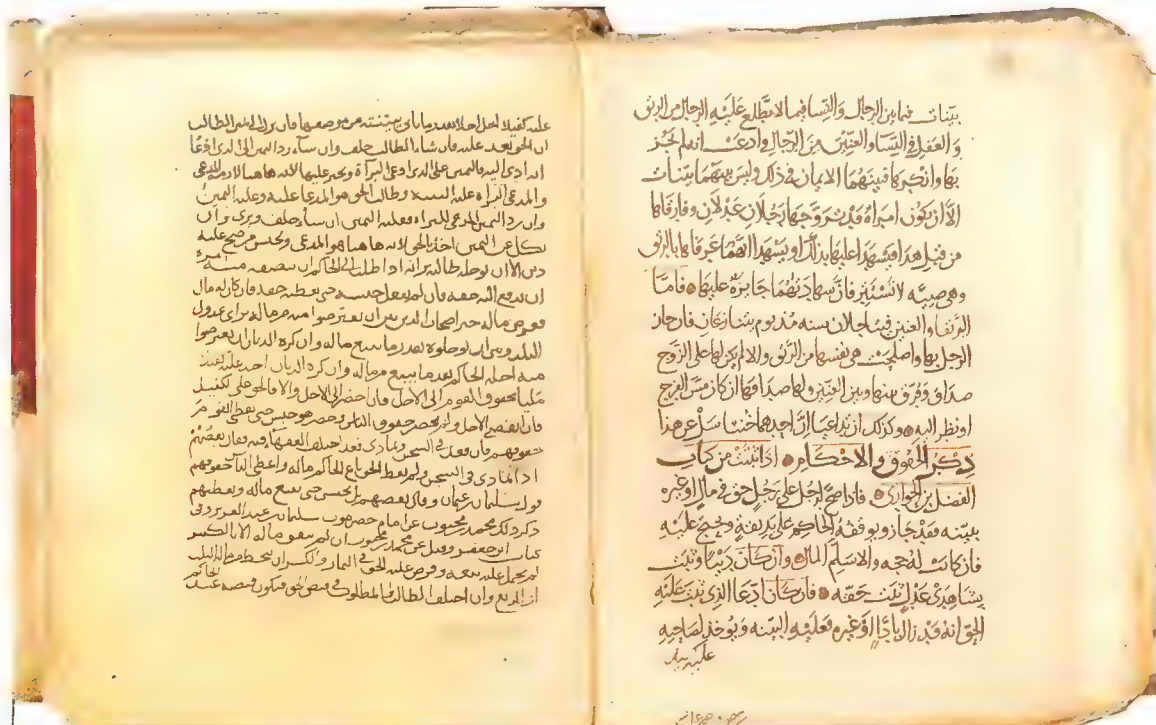 بينات فما بين الرجال والنسا فيما لا يطلع عليه الرجال من الرتق
والعفل في النسا والعنين من الرجال وادعت انه لم يجز
بها وانكر كا فبينهما الايمان في ذلك وليس بينهما بينات
الا ان يكون امراة قد تزوجها رجلان عدلان وفارقاها
من قبل هدا فيشهدا عليها بذلك او يشهدا انهما عرفاها بالرتق
وهي صبيه لا تستتر فان شهادتهما جايزة عليها فامّا
الرتقا والعنين فيؤجلان سنه مذ يوم يتنازعان فان جاز
الرجل بها واصلحت هي نفسها من الرتق والا لم يكن لها على الزوج
صداق وفرق بينها وبين العنين ولها صداقها ان كان مس الفرج
او نظر اليه وكذلك ان تداعيا ان احدهما خنثا سل عن هذا
ذكر الحقوق والاحكام اذا تثبت من كتاب
الفضل بن الحواري فاذا صح لرجل على رجل حق في مال او غيره
ببينه فقد جاز ويوقفه الحاكم على ويحتج عليه
فان كانت له حجه والا سلم المال وان كان دينا وثبت
بشاهدي عدل ثبت حقه فان كان ادعا الذي ثبت عليه
الحق انه قد زال باداا او غيره فعليه البينه ويوخذ لصاحبه
عليه
عليه كفيلا لعل اجلا بقدر ما ياتي ببينته من موضعها فان نزل الى يمين الطالب
ان الحق بعد عليه فان شاء الطالب حلف وان ساء رد اليمين الى الذى ادعا
انه ادى اليه واليمين على الذى ادعى البرآة ويجبر عليها لانه هاهنا
والمدعى البراه عليه البينه وطالب الحق هو المدعا عليه وعليه اليمين
وان رد اليمين المدعي للبراه فعليه اليمين ان ساء حلف وبرى وان
نكل عن اليمين اخذ بالحق لانه هاهنا هو المدعى ويحبس من صح عليه
دين الا ان يوجله طالبه اذا طلب الى الحاكم ان ينصفه منه
ان يدفع اليه حقه فان لم يفعل حبسه حتى يعطيه حقه فان كان له مال
فعرض ماله خير اصحاب الدين بين ان يعترضوا من ماله براى عدول
البلد وبين ان يوجلوه بقدر ما يبيع ماله وان كره الديان ان يعترضوا
منه اجله الحاكم بقدر ما يبيع من ماله وان كره الديان اخذ عليه
مليا بحقوق القوم الى الاجل فان احضر الى الاجل والا فالحق على الكفيل
فان الاجل ولم يحضر حقوق الناس وحضر هو حبس حتى يعطى القوم
حقوقهم فان قعد في السجن وتمادى فقد اختلف الفقهاء فيه فقال بعضهم
اذا تمادى في السجن ولم يعط الحق باع الحاكم ماله واعطى الناس حقوقهم
قول سليمان بن عثمان وقال بعضهم بل يحبس حتى يبيع ماله ويعطيهم
ذكر ذلك محمد بن محبوب عن امام حضرموت سليمان بن عبد العزيز وفي
كتاب ابن جعفر وقيل عن محمد بن محبوب ان لم ينفق ماله الا بالكسر
لم يحمل عليه بيعه وفرض عليه الحق في الثمار والكسر ان ينحط من ماله الثلث
او الربع وان اختلف الطالب والمطلوب في قبض الحق فيكون قبضه عند
الحاكم